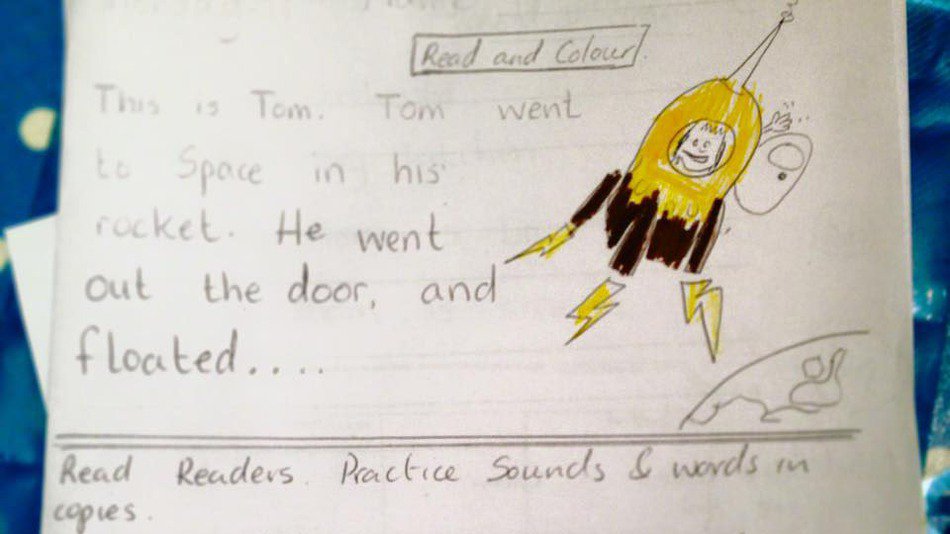 Read and Colour.
This is Tom. Tom went
to Space in his
rocket. He went
out the door, and
floated....
Read Readers. Practice Sounds & words in
copies.